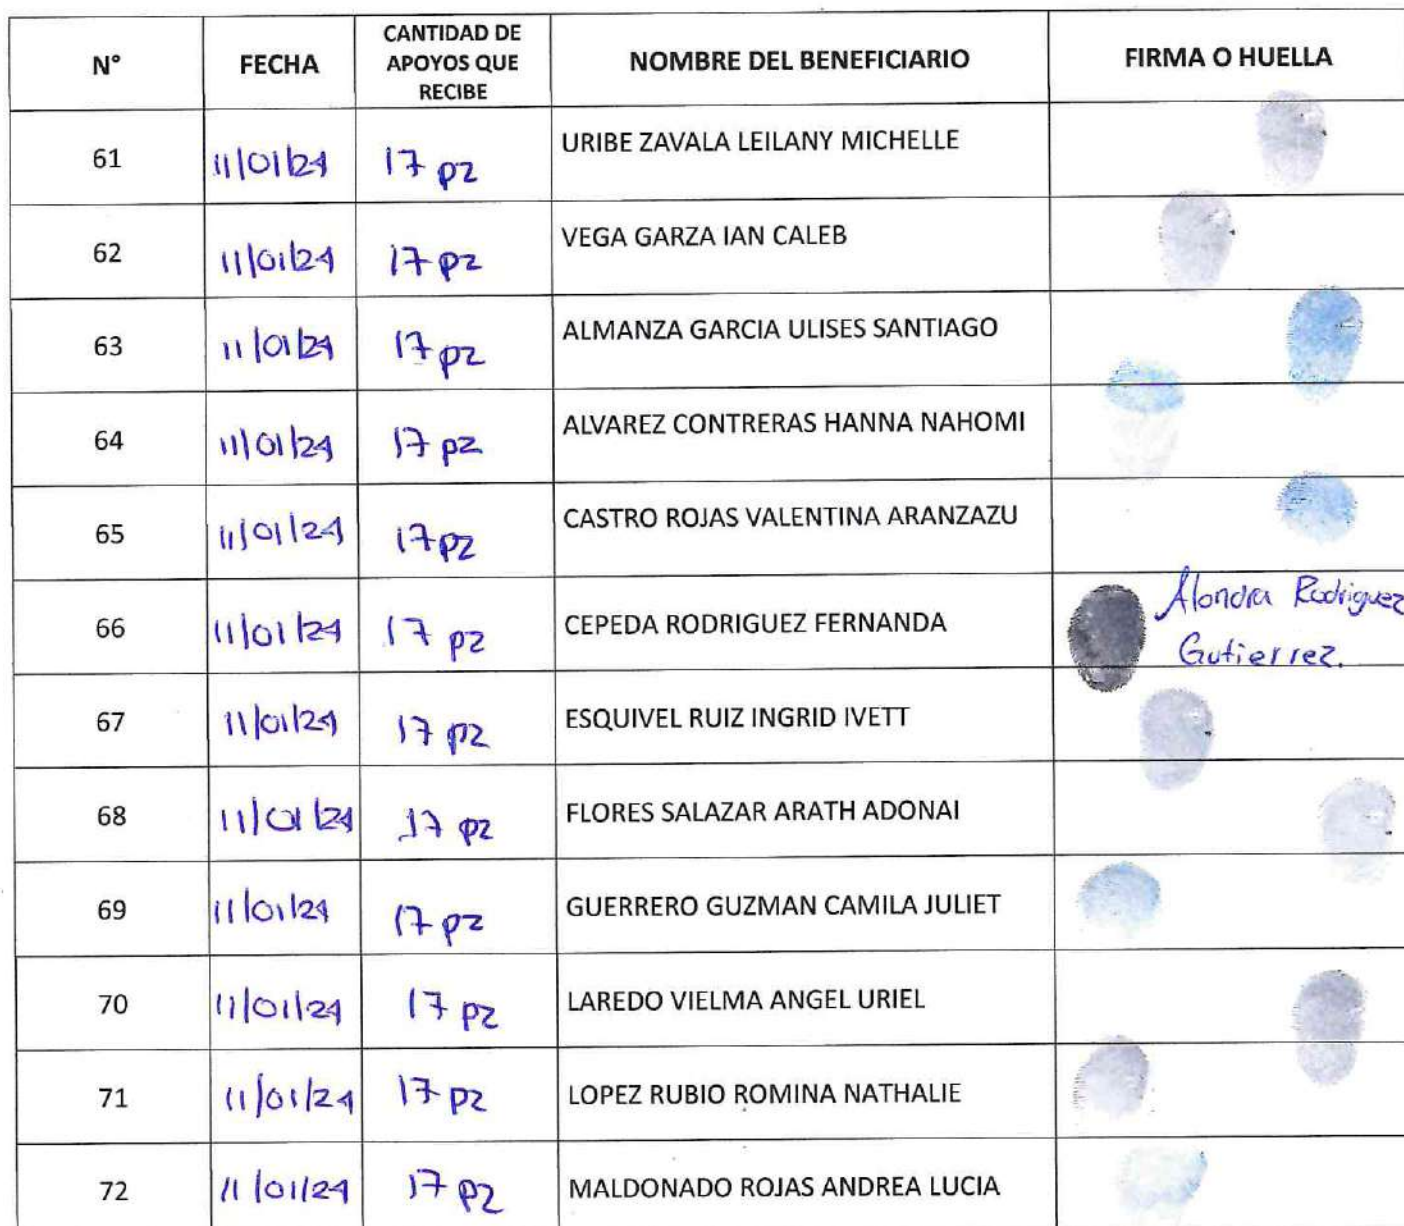 N° FECHA CANTIDAD DE APOYOS QUE RECIBE NOMBRE DEL BENEFICIARIO FIRMA O HUELLA
61 11/01/24 17 pz URIBE ZAVALA LEILANY MICHELLE
62 11/01/24 17 pz VEGA GARZA IAN CALEB
63 11/01/24 17 pz ALMANZA GARCIA ULISES SANTIAGO
64 11/01/24 17 pz ALVAREZ CONTRERAS HANNA NAHOMI
65 11/01/24 17 pz CASTRO ROJAS VALENTINA ARANZAZU
66 11/01/24 17 pz CEPEDA RODRIGUEZ FERNANDA Alondra Rodriguez
Gutierrez.
67 11/01/24 17 pz ESQUIVEL RUIZ INGRID IVETT
68 11/01/24 17 pz FLORES SALAZAR ARATH ADONAI
69 11/01/24 17 pz GUERRERO GUZMAN CAMILA JULIET
70 11/01/24 17 pz LAREDO VIELMA ANGEL URIEL
71 11/01/24 17 pz LOPEZ RUBIO ROMINA NATHALIE
72 11/01/24 17 pz MALDONADO ROJAS ANDREA LUCIA